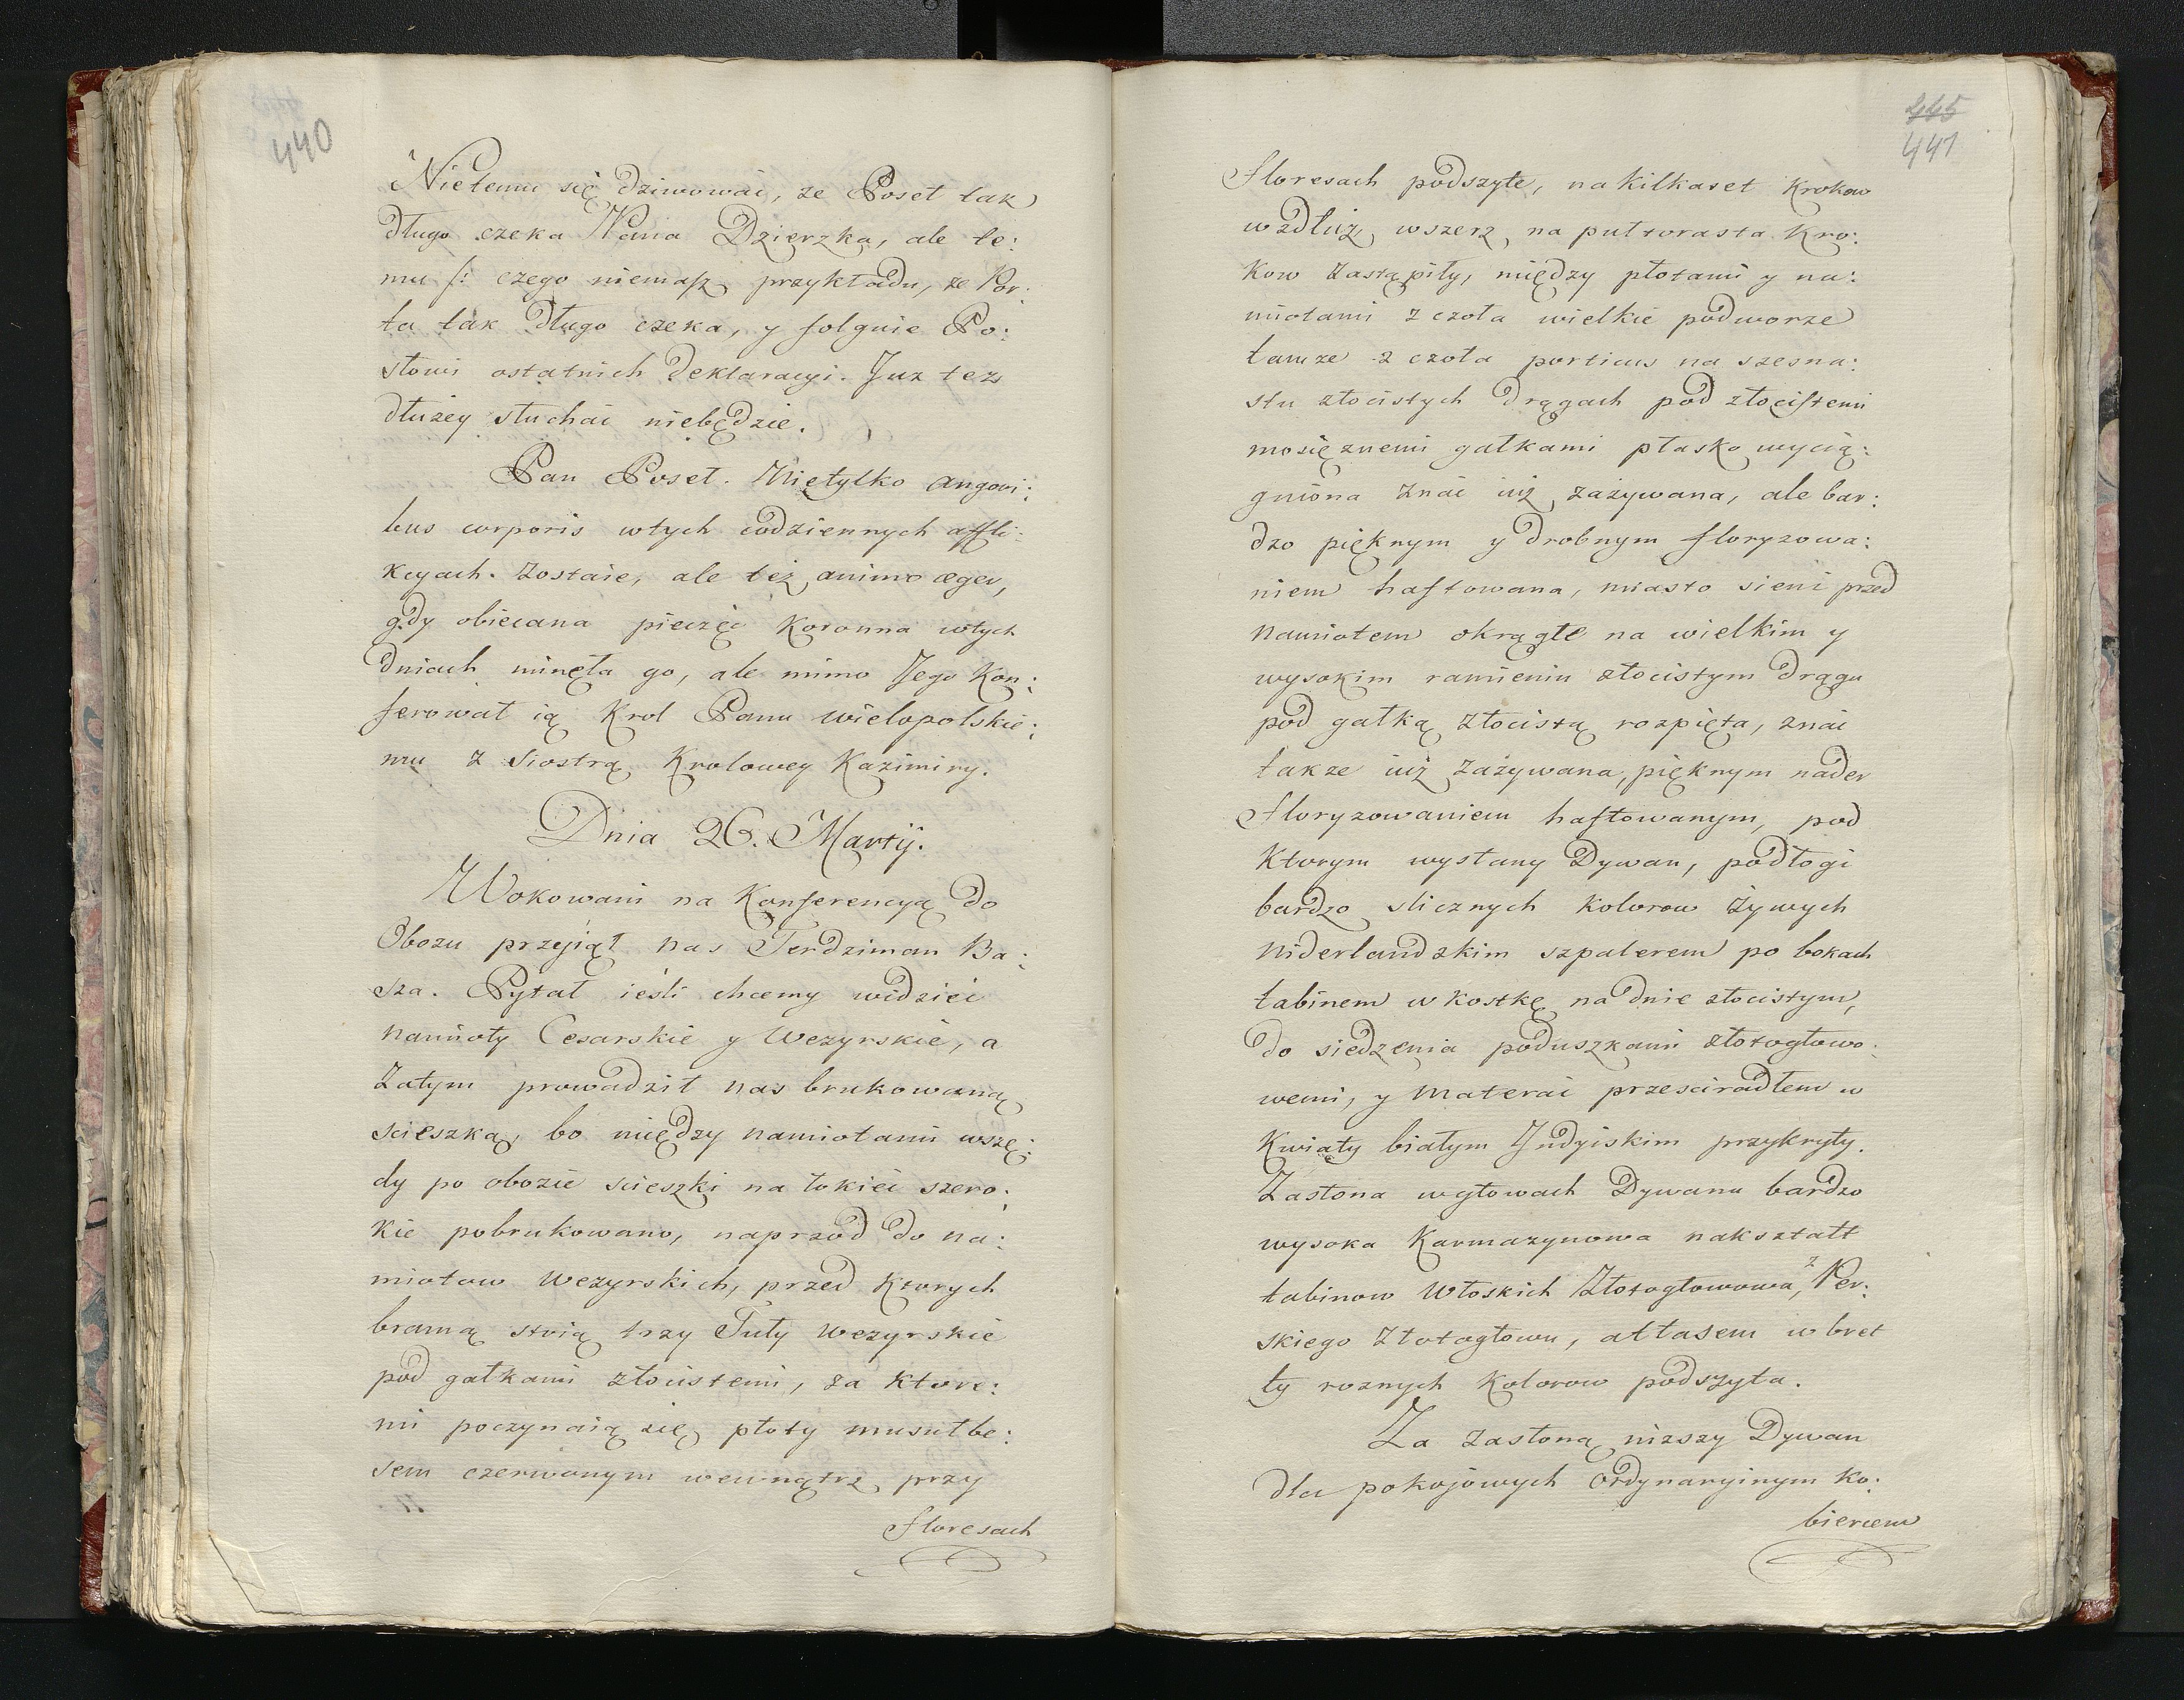 440
Nietemu się dziwować, ze Poset tak
długo czeka Pana Dzierzka, ale te:
mu /: czego niemasz przykładu, ze Por:
ta tak długo czeka, y folguie Po:
słowi ostatnich Deklaracyi. Juz tez
dłużey słuchać niebędzie.
Pan Poset. Nietylko angori:
bus corporis wtych codziennych affli:
kcyach. zostaie, ale też animo æger,
gdy obiecana pieczęć Koronna wtych
dniach minęła go, ale mimo Jego Kon:
ferował ią Krol Panu Wielopolskie:
mu z Siostrą Krolowey Kazimiry.
Dnia 26. Martij.
Wokowani na Konferencyą do
Obozu przejiął nas Terdziman Ba:
sza. Pytał ieśli chcemy widzieć
Namioty Cesarskie y Wezyrskie, a
Zatym prowadził nas brukowaną
scieszką, bo między namiotami wszę:
dy po obozie scieszki na łokieć szero:
kie pobrukowano, naprzod do na:
miotow Wezyrskich, przed Ktorych
bramą stoią trzy Tuły Wezyrskie
pod gałkami złocistemi, za Ktore:
mi poczynaią się płoty musułbe:
sem czerwonym wewnątrz przy
floresach
445
441
floresach podszyte, na kilkaset Krokow
wzdłuż, wszerz, na pułtorasta Kro:
kow zastąpiły, między płotami y na:
miotami z czoła wielkie podworze
tamze z czoła porticus na szesna:
stu złocistych drągach pod złocistemi
mosięznemi gałkami płasko wycią:
gniona znać iuż zażywana, ale bar:
dzo pięknym y drobnym floryzowa:
niem haftowana, miasto sieni przed
Namiotem okrągłe na wielkim y
wysokim ramieniu złocistym drągu
pod gałką złocistą rozpięta, znać
takze iuż zażywana, pięknym nader
floryzowaniem haftowanym, pod
Ktorym wysłany Dywan, podłogi
bardzo slicznych kolorow żywych
Niderlandzkim szpalerem po bokach
tabinem w kostkę na dnie złocistym,
do siedzenia poduszkami złotogłowo:
wemi, y Materac przescieradłem w
Kwiaty białym Jndyiskim przykryty.
Zasłona wgłowach Dywanu bardzo
wysoka Karmazynowa nakształt
tabinow Włoskich Złotogłowowa, z Per:
skiego Złotogłowu, atłasem w bret
ty roznych Kolorow podszyta.
Za zasłoną niższy Dywan
dla pokojowych ordynaryinym Ko:
biercem